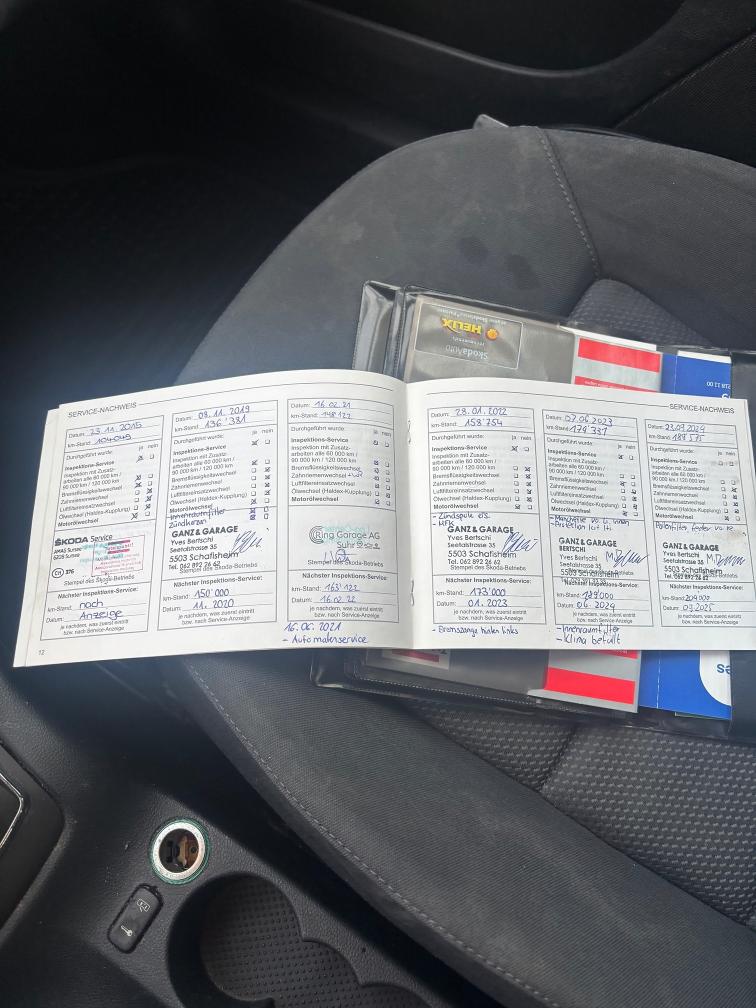 SERVICE-NACHWEIS
Datum: 23.11.2015
km-Stand: 104049
Durchgeführt wurde:
ja nein
Inspektions-Service
Inspektion mit Zusatz-
arbeiten alle 60 000 km /
90 000 km / 120 000 km
Bremsflüssigkeitswechsel
Zahnriemenwechsel
Luftfiltereinsatzwechsel
Ölwechsel (Haldex-Kupplung)
Motorölwechsel
ŠKODA Service
AMAG Sursee
6208 Sursee
CH 376
Stempel des Skoda-Betriebs
Nächster Inspektions-Service:
km-Stand: nach
Datum: Anzeige
je nachdem, was zuerst eintritt
bzw. nach Service-Anzeige
12
Datum: 08.11.2019
km-Stand: 136'381
Durchgeführt wurde:
ja nein
Inspektions-Service
Inspektion mit Zusatz-
arbeiten alle 60 000 km /
90 000 km / 120 000 km
Bremsflüssigkeitswechsel
Zahnriemenwechsel
Luftfiltereinsatzwechsel
Ölwechsel (Haldex-Kupplung)
Motorölwechsel
-Innenraumfilter
Zündkerzen
GANZ & GARAGE
Yves Bertschi
Seetalstrasse 35
5503 Schafisheim
Tel. 062 892 26 62
Stempel des Skoda-Betriebs
Nächster Inspektions-Service:
km-Stand: 150'000
Datum: 11.2020
je nachdem, was zuerst eintritt
bzw. nach Service-Anzeige
Datum: 16.02.21
km-Stand: 148'122
Durchgeführt wurde:
ja nein
Inspektions-Service
Inspektion mit Zusatz-
arbeiten alle 60 000 km /
90 000 km / 120 000 km
Bremsflüssigkeitswechsel
Zahnriemenwechsel
Luftfiltereinsatzwechsel
Ölwechsel (Haldex-Kupplung)
Motorölwechsel
Ring Garage AG
Suhr
Stempel des Skoda-Betriebs
Nächster Inspektions-Service:
km-Stand: 163'122
Datum: 16.02.22
je nachdem, was zuerst eintritt
bzw. nach Service-Anzeige
16.06.2021
- Automatenservice
SERVICE-NACHWEIS
Datum: 28.01.2022
km-Stand: 158'754
Durchgeführt wurde:
ja nein
Inspektions-Service
Inspektion mit Zusatz-
arbeiten alle 60 000 km /
90 000 km / 120 000 km
Bremsflüssigkeitswechsel
Zahnriemenwechsel
Luftfiltereinsatzwechsel
Ölwechsel (Haldex-Kupplung)
Motorölwechsel
- Zündspule
GANZ & GARAGE
Yves Bertschi
Seetalstrasse 35
5503 Schafisheim
Tel. 062 892 26 62
Stempel des Skoda-Betriebs
Nächster Inspektions-Service:
km-Stand: 173'000
Datum: 01.2023
je nachdem, was zuerst eintritt
bzw. nach Service-Anzeige
- Bremszange hinten links
Datum: 07.06.2023
km-Stand: 174'337
Durchgeführt wurde:
ja nein
Inspektions-Service
Inspektion mit Zusatz-
arbeiten alle 60 000 km /
90 000 km / 120 000 km
Bremsflüssigkeitswechsel
Zahnriemenwechsel
Luftfiltereinsatzwechsel
Ölwechsel (Haldex-Kupplung)
Motorölwechsel
GANZ & GARAGE
BERTSCHI
Yves Bertschi
Seetalstrasse 35
5503 Schafisheim
Nächster Inspektions-Service:
km-Stand: 189'000
Datum: 06.2024
je nachdem, was zuerst eintritt
bzw. nach Service-Anzeige
-Innenraumfilter
-Klima befüllt
Datum: 23.09.2024
km-Stand:
Durchgeführt wurde:
Inspektions-Service
Inspektion mit Zusatz-
arbeiten alle 60 000 km /
90 000 km / 120 000 km
Bremsflüssigkeitswechsel
Zahnriemenwechsel
Luftfiltereinsatzwechsel
Ölwechsel (Haldex-Kupplung)
Motorölwechsel
GANZ & GARAGE
Yves Bertschi
Seetalstrasse 35
5503 Schafisheim
Tel. 062 892 26 62
Stempel des Skoda-Betriebs
Nächster Inspektions-Service:
km-Stand: 204'000
Datum: 09.2025
je nachdem, was zuerst eintritt
bzw. nach Service-Anzeige
HELIX
SkodaAuto